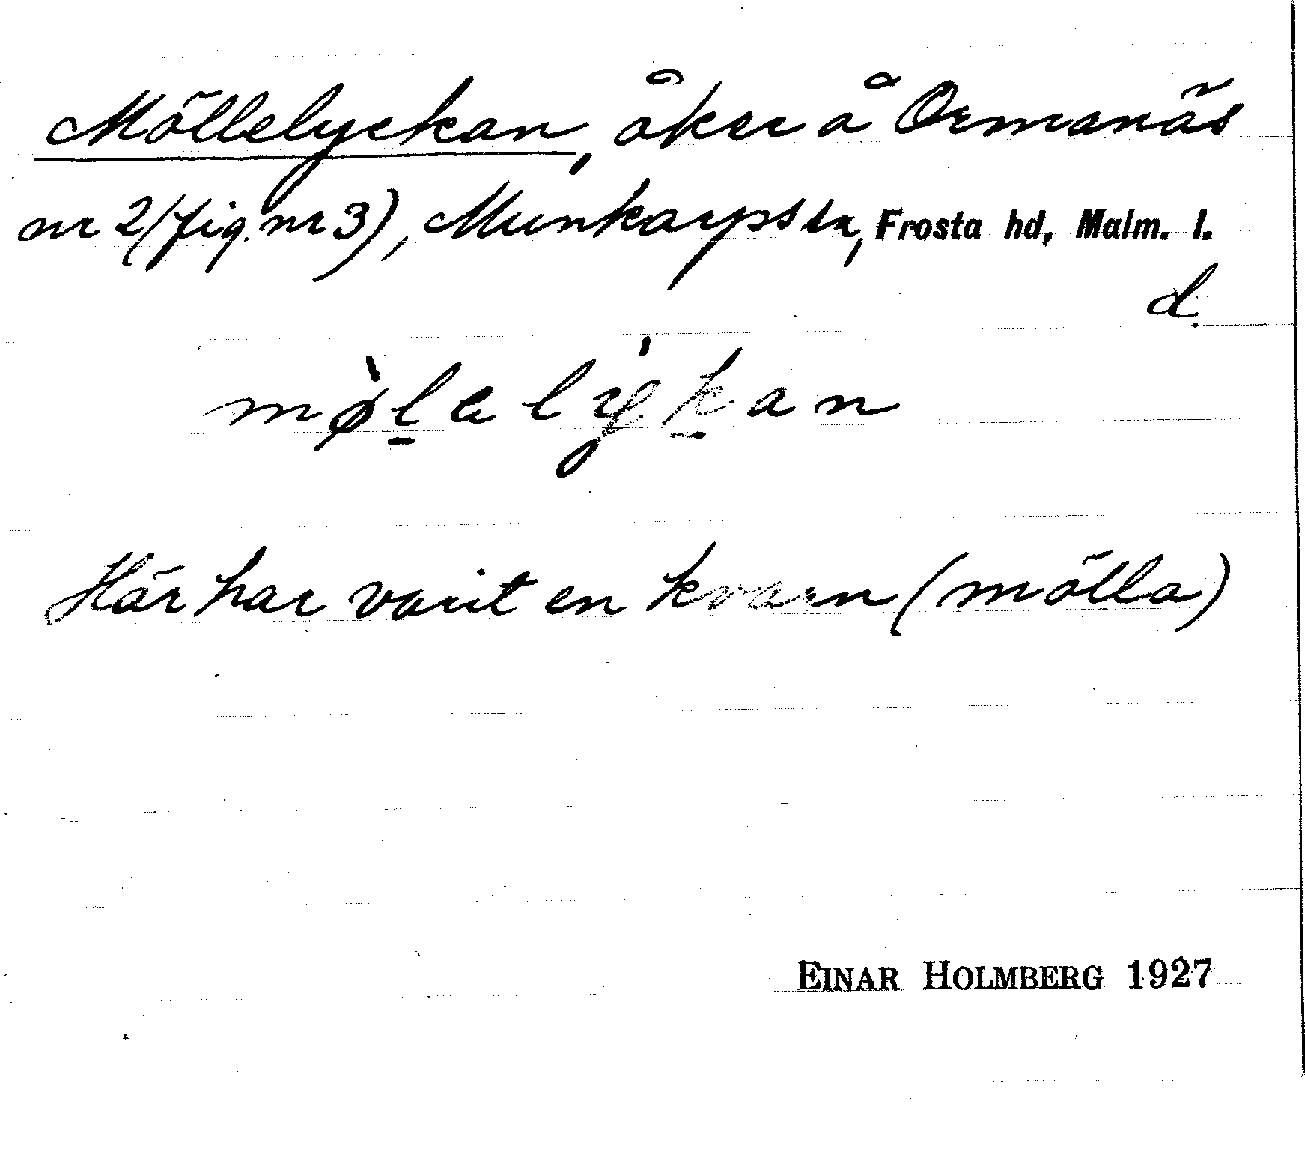 Möllelyckan, åker å Ormanäs
nr 2 (fig. nr 3), Munkarps sn, Frosta hd, Malm. l.
d.
mø̀lalýkan
Här har varit en kvarn (mölla)
EINAR HOLMBERG 1927